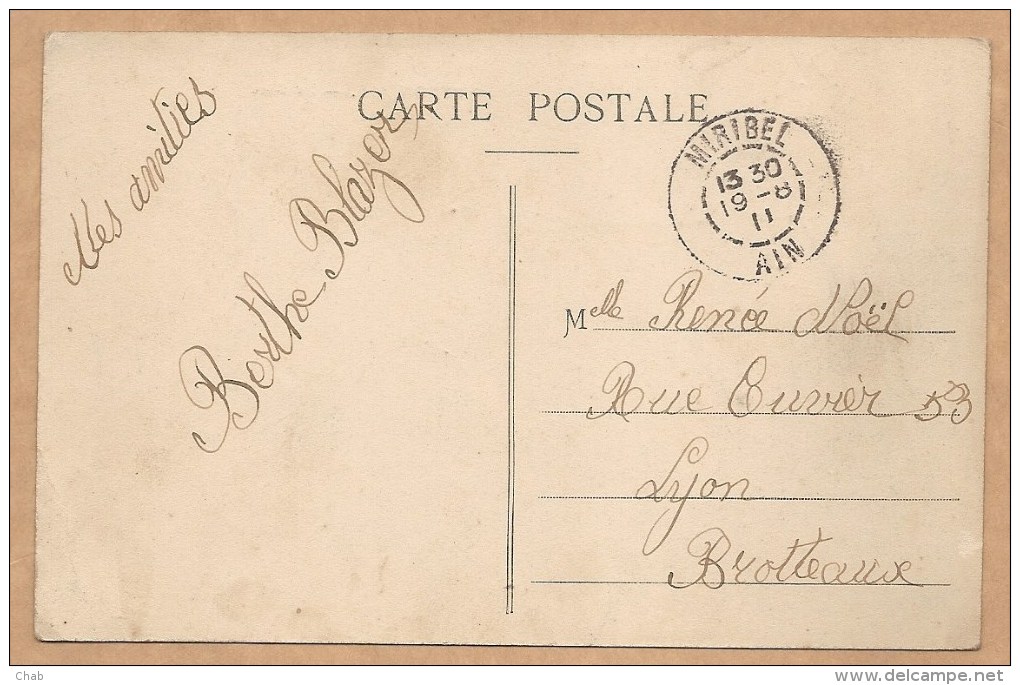 CARTE POSTALE
Mes amitiés
Berthe Blazer
MIRIBEL
13 30
19 - 8
11
AIN
Melle Renée Noël
Rue Cuvier 53
Lyon
Brotteaux
Chab
www.delcampe.net